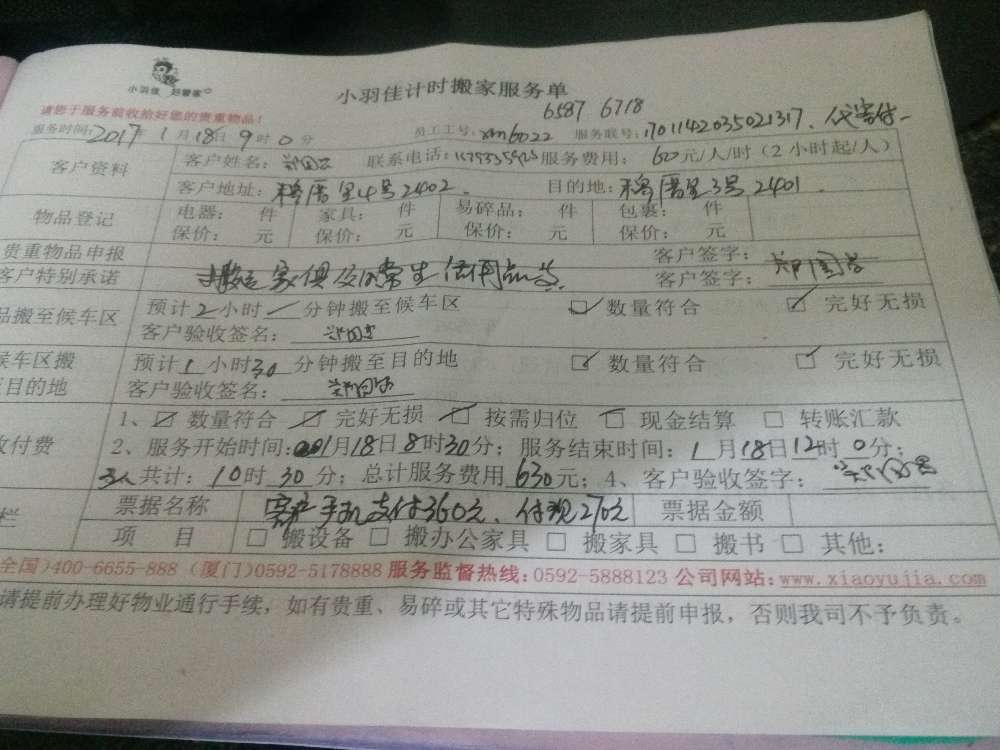 小羽佳 好管家
小羽佳计时搬家服务单
6587 6718
请您于服务前收拾好您的贵重物品!
服务时间: 2017年1月18日9时0分 员工工号: xm6022 服务联号: 1701142035021317.
客户资料 客户姓名: 联系电话: 服务费用: 60元/人/时 (2小时起/人)
客户地址: 4号2402. 目的地: 3号2401.
物品登记 电器: 件 家具: 件 易碎品: 件 包裹: 件
保价: 元 保价: 元 保价: 元 保价: 元
贵重物品申报 客户签字:
客户特别承诺 搬运家俱及日常生活用品等 客户签字: 郑国
品搬至候车区 预计2小时/分钟搬至候车区 ☑ 数量符合 ☑ 完好无损
客户验收签名: 郑国
候车区搬 预计1小时30分钟搬至目的地 ☑ 数量符合 ☑ 完好无损
至目的地 客户验收签名: 郑国
收付费 1、☑ 数量符合 ☑ 完好无损 ☑ 按需归位 ☑ 现金结算 □ 转账汇款
2、服务开始时间: 1月18日8时30分; 服务结束时间: 1月18日12时0分;
3人共计: 10时30分; 总计服务费用630元; 4、客户验收签字: 郑国
栏 票据名称 客户手机支付360元、付现270元 票据金额
项 目 □ 搬设备 □ 搬办公家具 □ 搬家具 □ 搬书 □ 其他:
全国)400-6655-888 (厦门)0592-5178888 服务监督热线:0592-5888123 公司网站:www.xiaoyujia.com
请提前办理好物业通行手续,如有贵重、易碎或其它特殊物品请提前申报,否则我司不予负责。